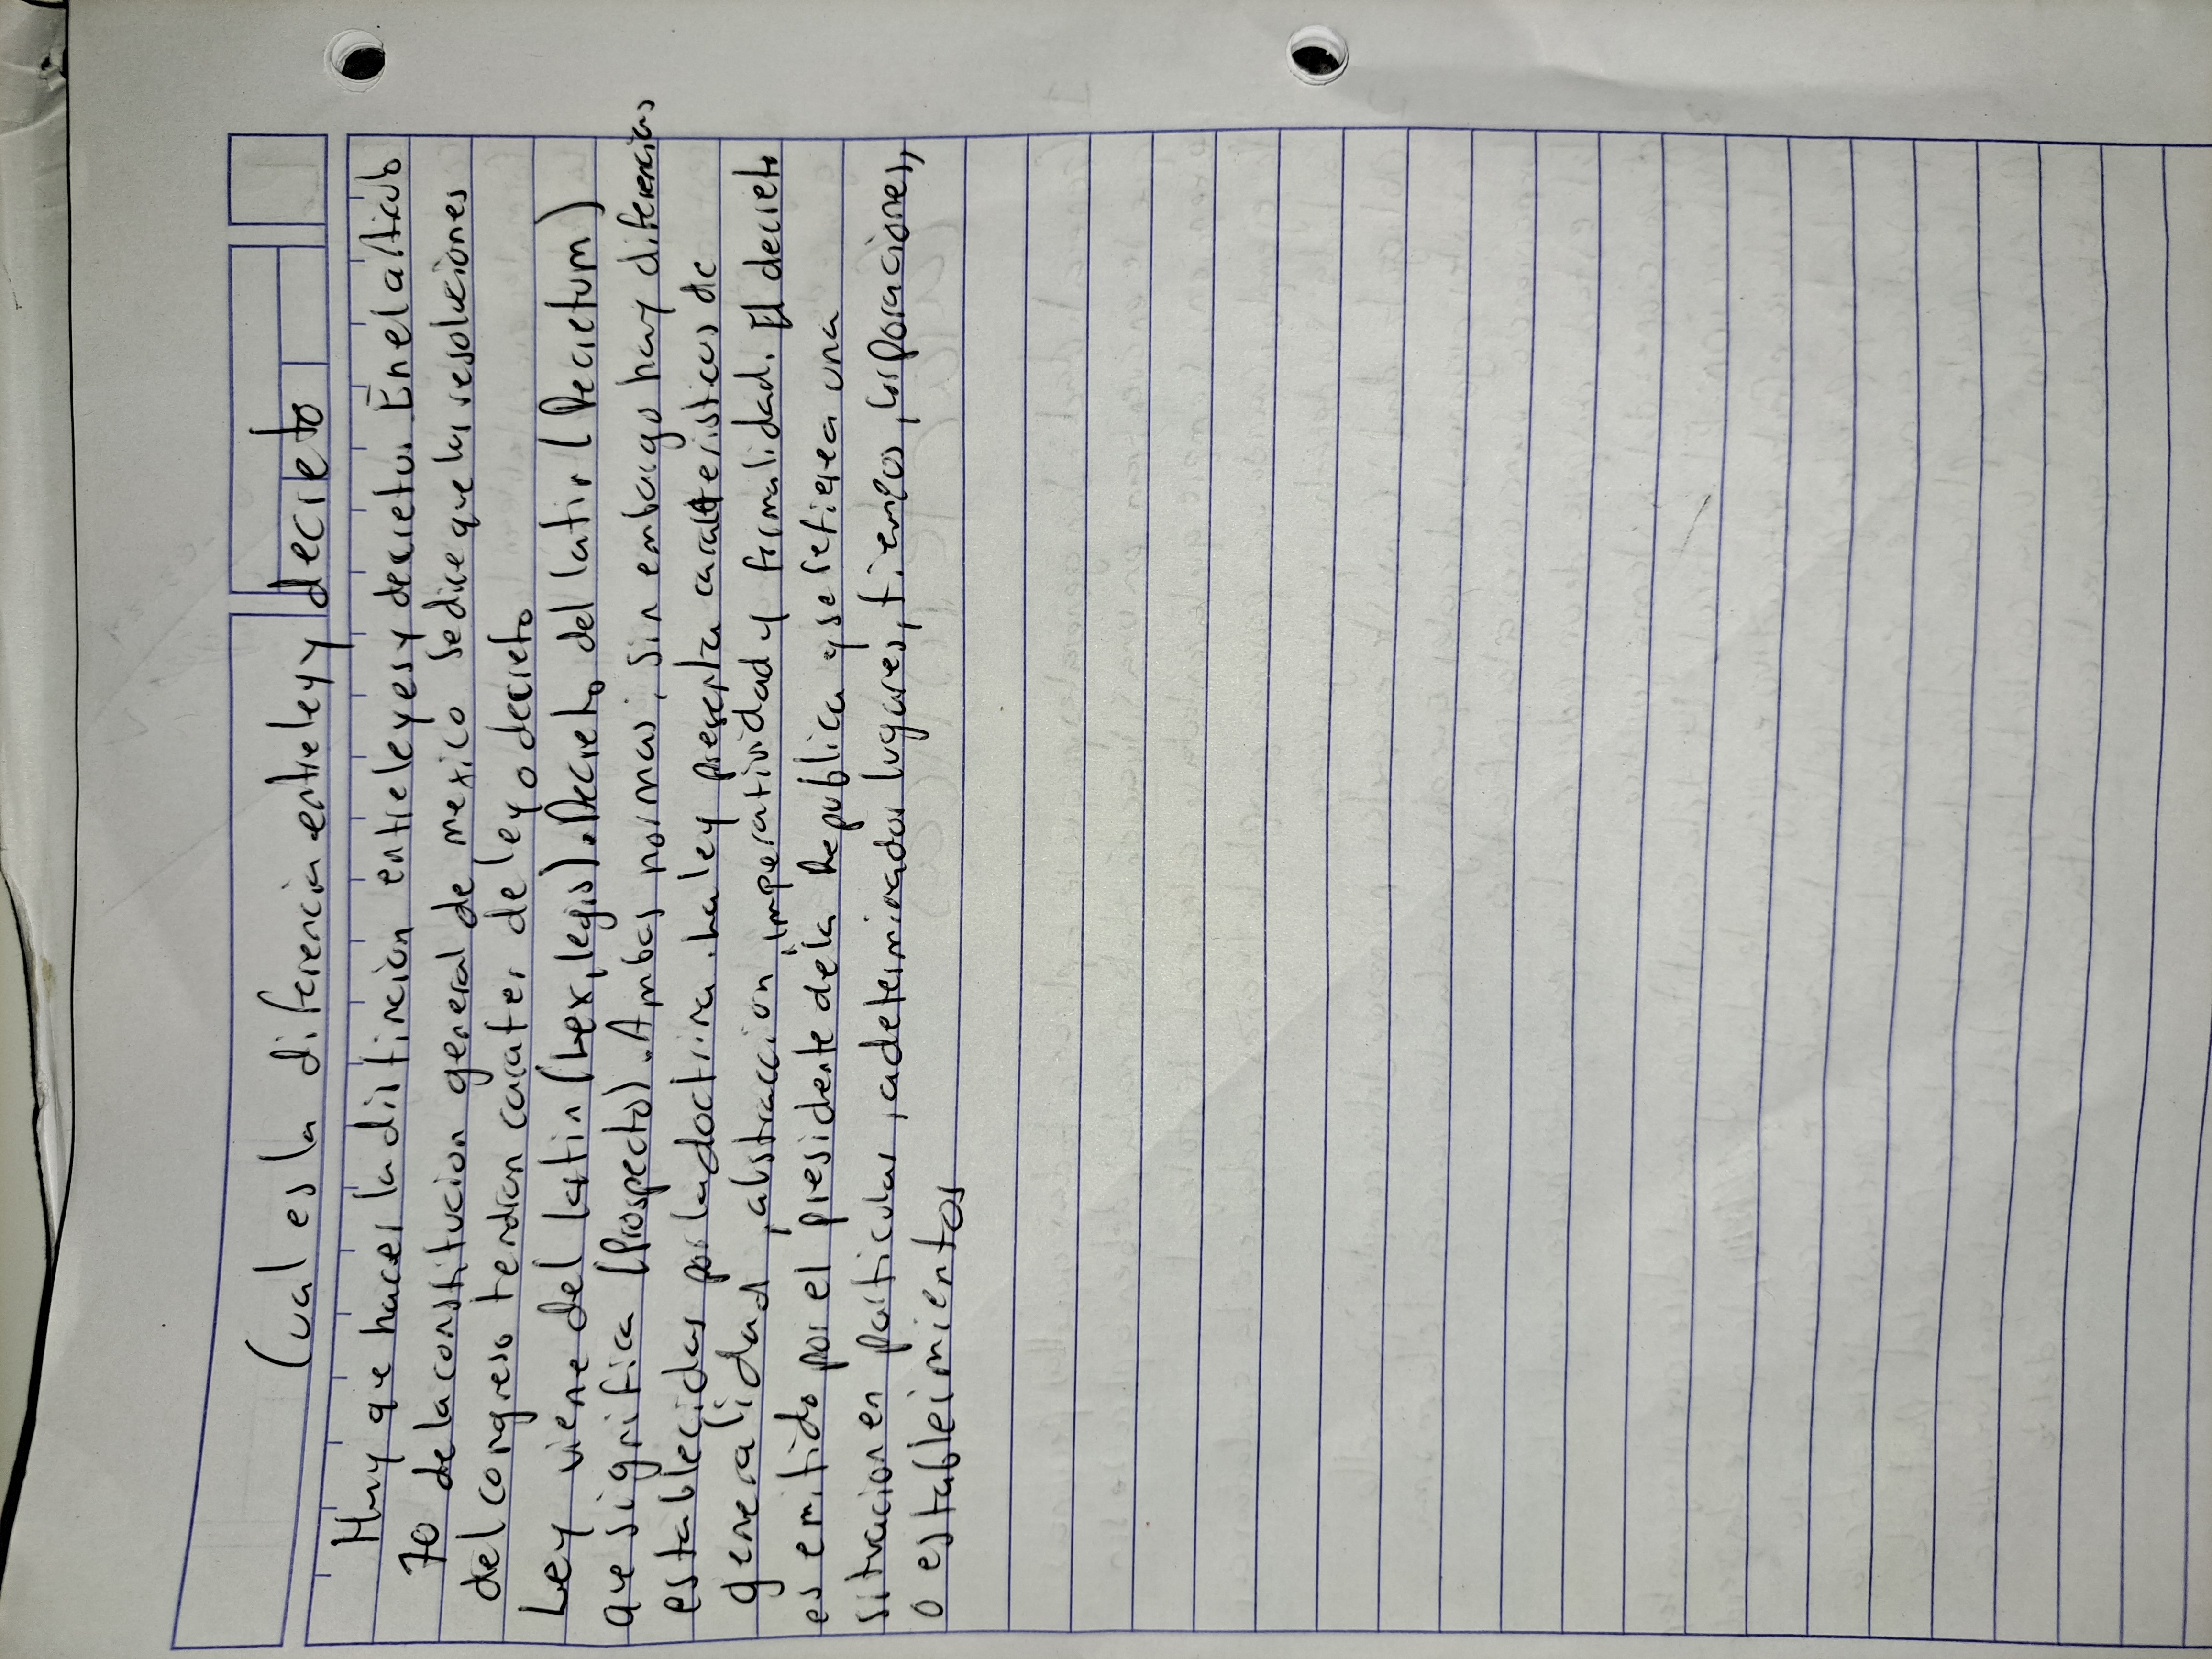 Cual es la diferencia entre ley y decreto
Hay que hacer la distincion entre leyes y decreto. En el articulo
70 de la constitucion general de mexico se dice que las resoluciones
del congreso tendran carater de ley o decreto
Ley viene del latin (Lex, legis). Decreto del latin (Decretum)
que significa (Prospecto). Ambas normas, sin embargo hay diferencias
establecidas por la doctrina. La ley presenta caracteristicas de
generalidad, abstraccion, imperatividad y formalidad. El decreto
es emitido por el presidente de la Republica y se refiere a una
situacion en particular, a determinados lugares, tiempos, corporaciones,
o estableimientos